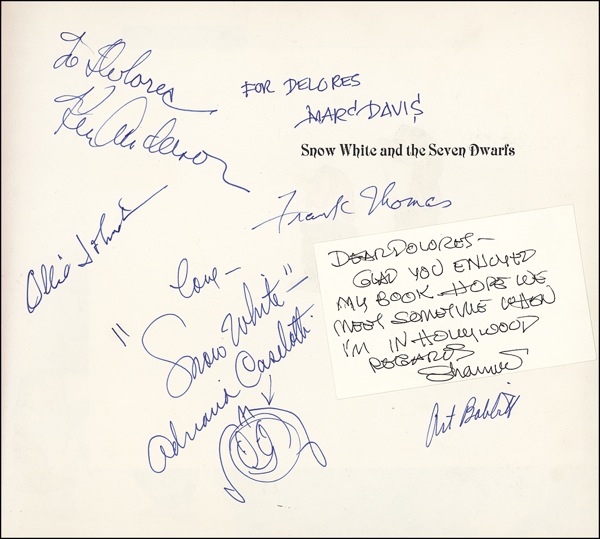 To Dolores
Ken Anderson
FOR DELORES
MARC DAVIS
Snow White and the Seven Dwarfs
Frank Thomas
Ollie Johnston
Love —
"Snow White"
Adriana Caselotti
DEAR DOLORES —
GLAD YOU ENJOYED
MY BOOK. HOPE WE
MEET SOMETIME WHEN
I'M IN HOLLYWOOD
REGARDS
Shamus
Art Babbitt